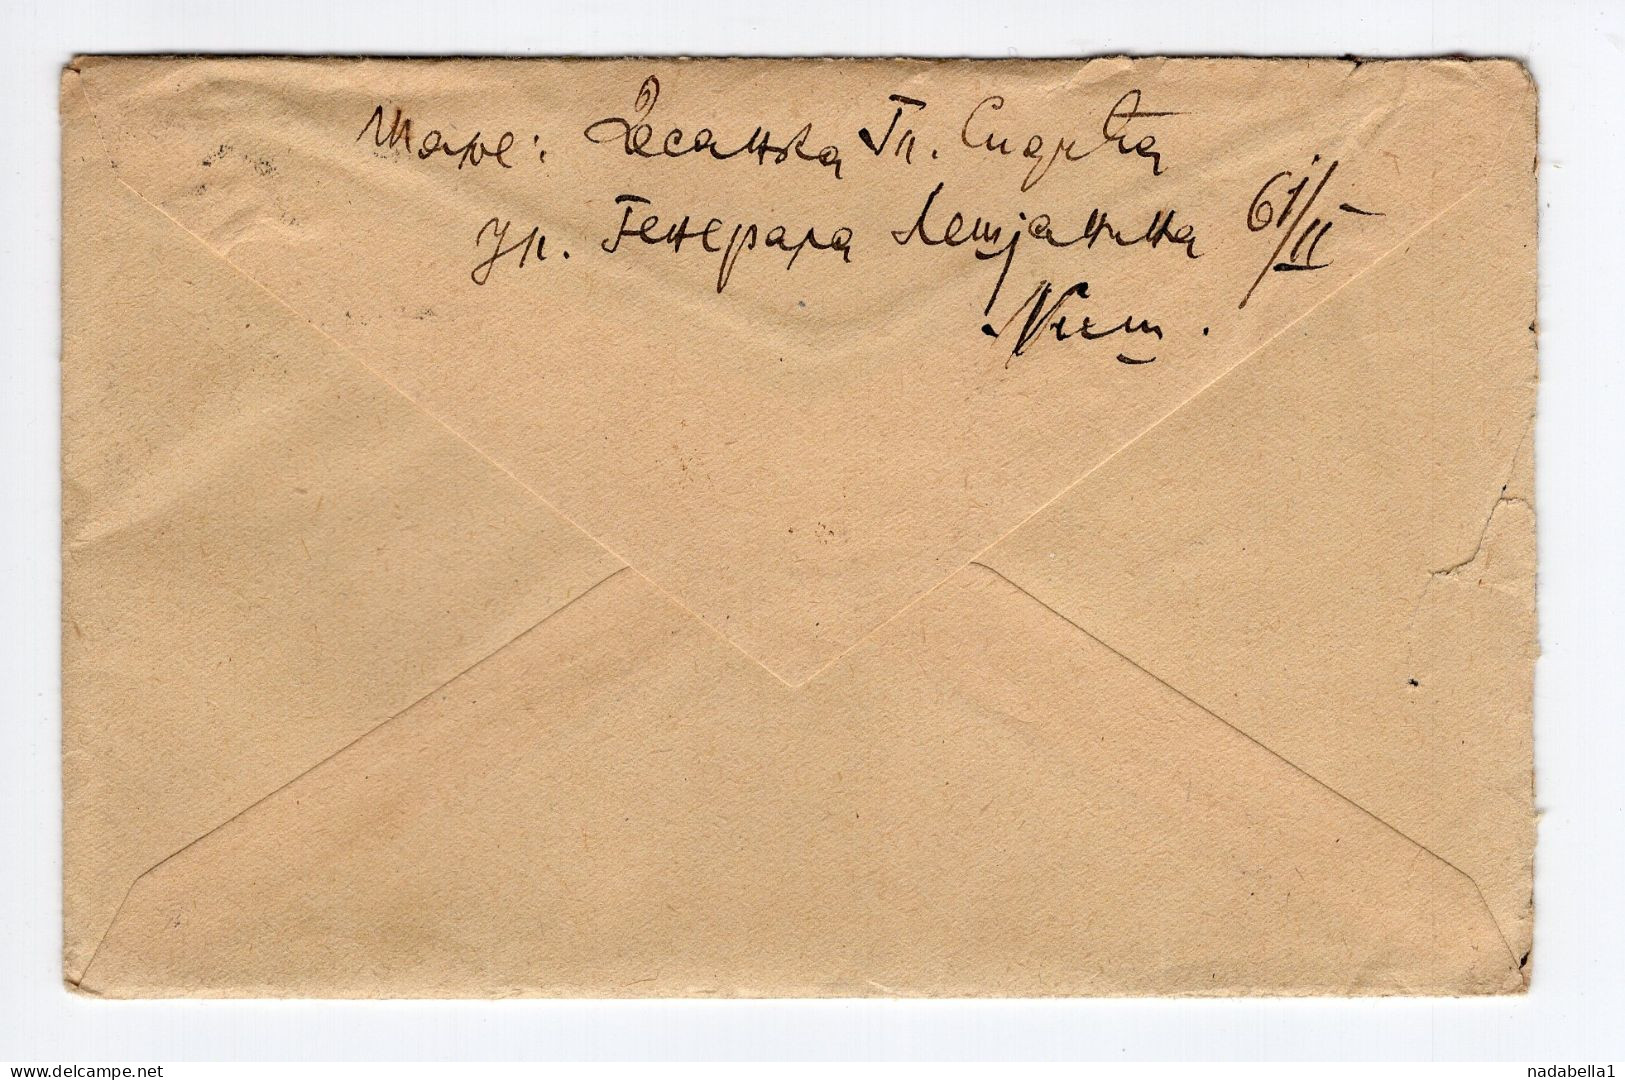 Шаље: Десанка Гл. Сидића
ул. Генерала Лешјанина 61/II
Ниш.
www.delcampe.net
nadabella1